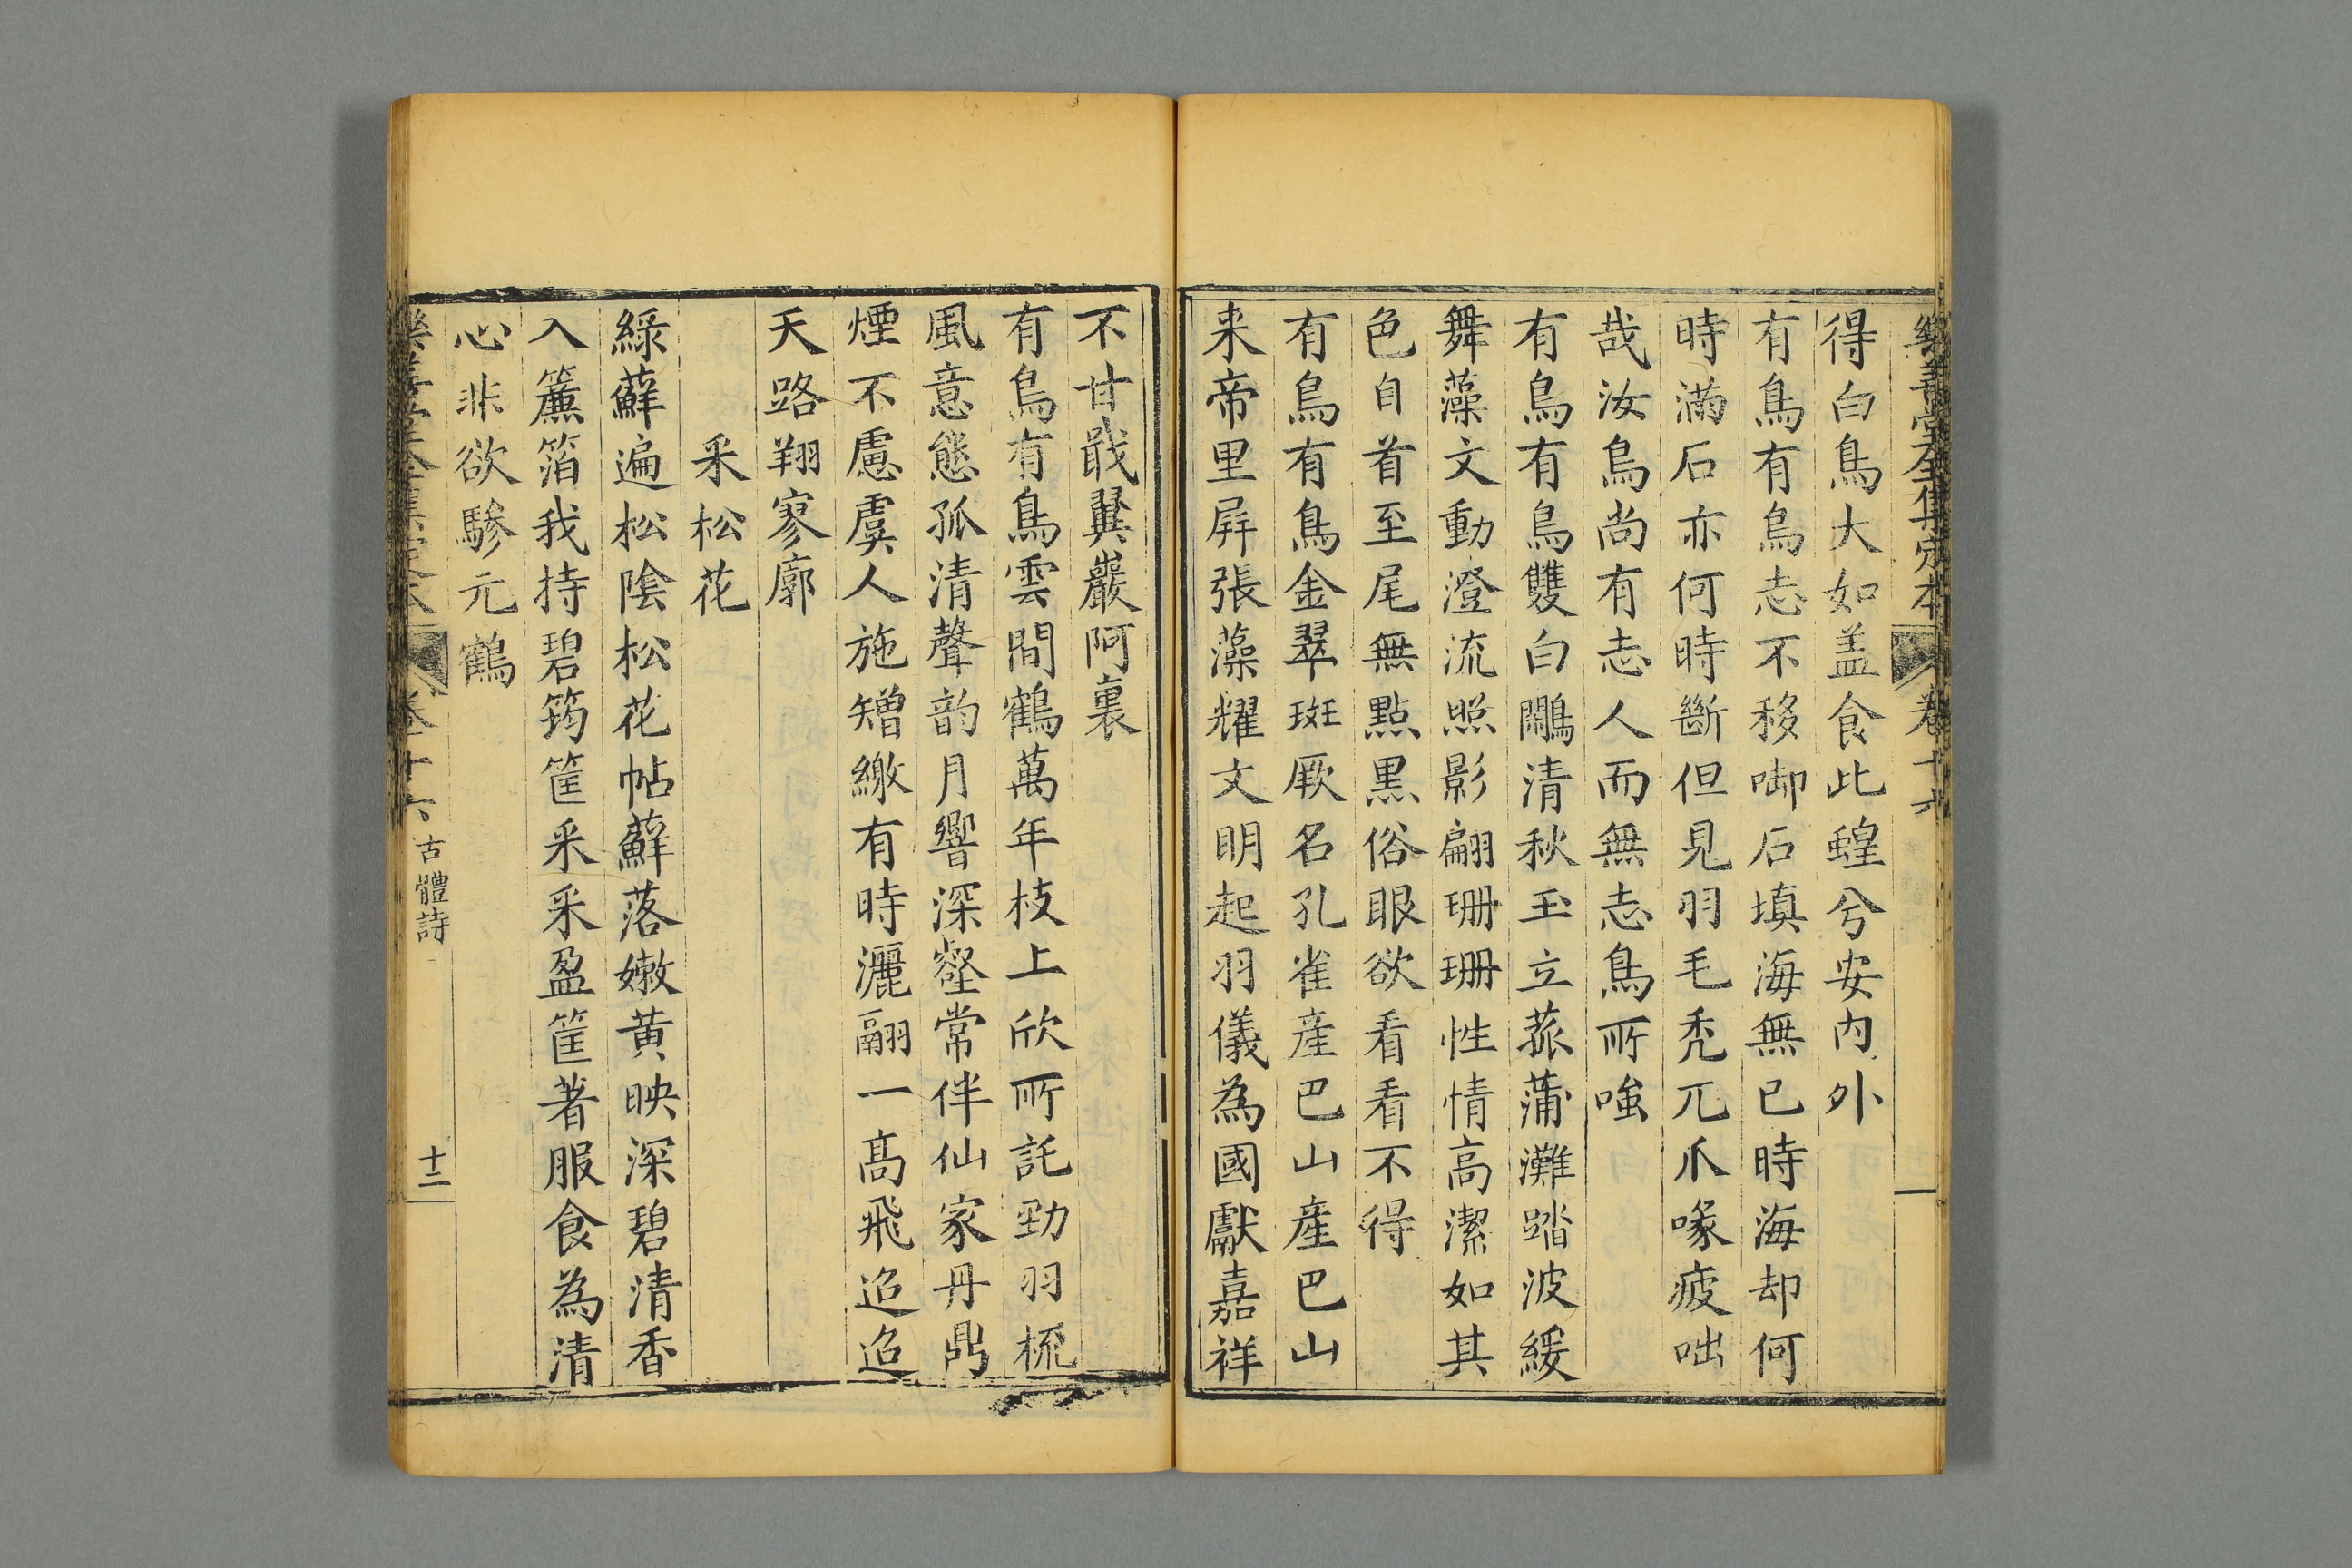 樂善堂全集定本 卷十六
得白鳥大如盖食此蝗兮安内外
有鳥有鳥志不移啣石填海無已時海却何
時滿石亦何時斷但見羽毛禿兀爪喙疲咄
哉汝鳥尚有志人而無志鳥所嗤
有鳥有鳥雙白鷳清秋玉立菰蒲灘踏波緩
舞藻文動澄流照影翩珊珊性情高潔如其
色自首至尾無點黒俗眼欲看看不得
有鳥有鳥金翠斑厥名孔雀産巴山産巴山
来帝里屛張藻耀文明起羽儀為國獻嘉祥
不甘戢翼巖阿裏
有鳥有鳥雲間鶴萬年枝上欣所託勁羽梳
風意態孤清聲韵月響深壑常伴仙家丹鼎
煙不慮虞人施矰繳有時灑翮一髙飛迢迢
天路翔寥廓
采松花
綠蘚遍松陰松花帖蘚落嫩黄映深碧清香
入簾箔我持碧筠筐采采盈筐著服食為清
心非欲驂元鶴
樂善堂全集定本 卷十六 古體詩 十二